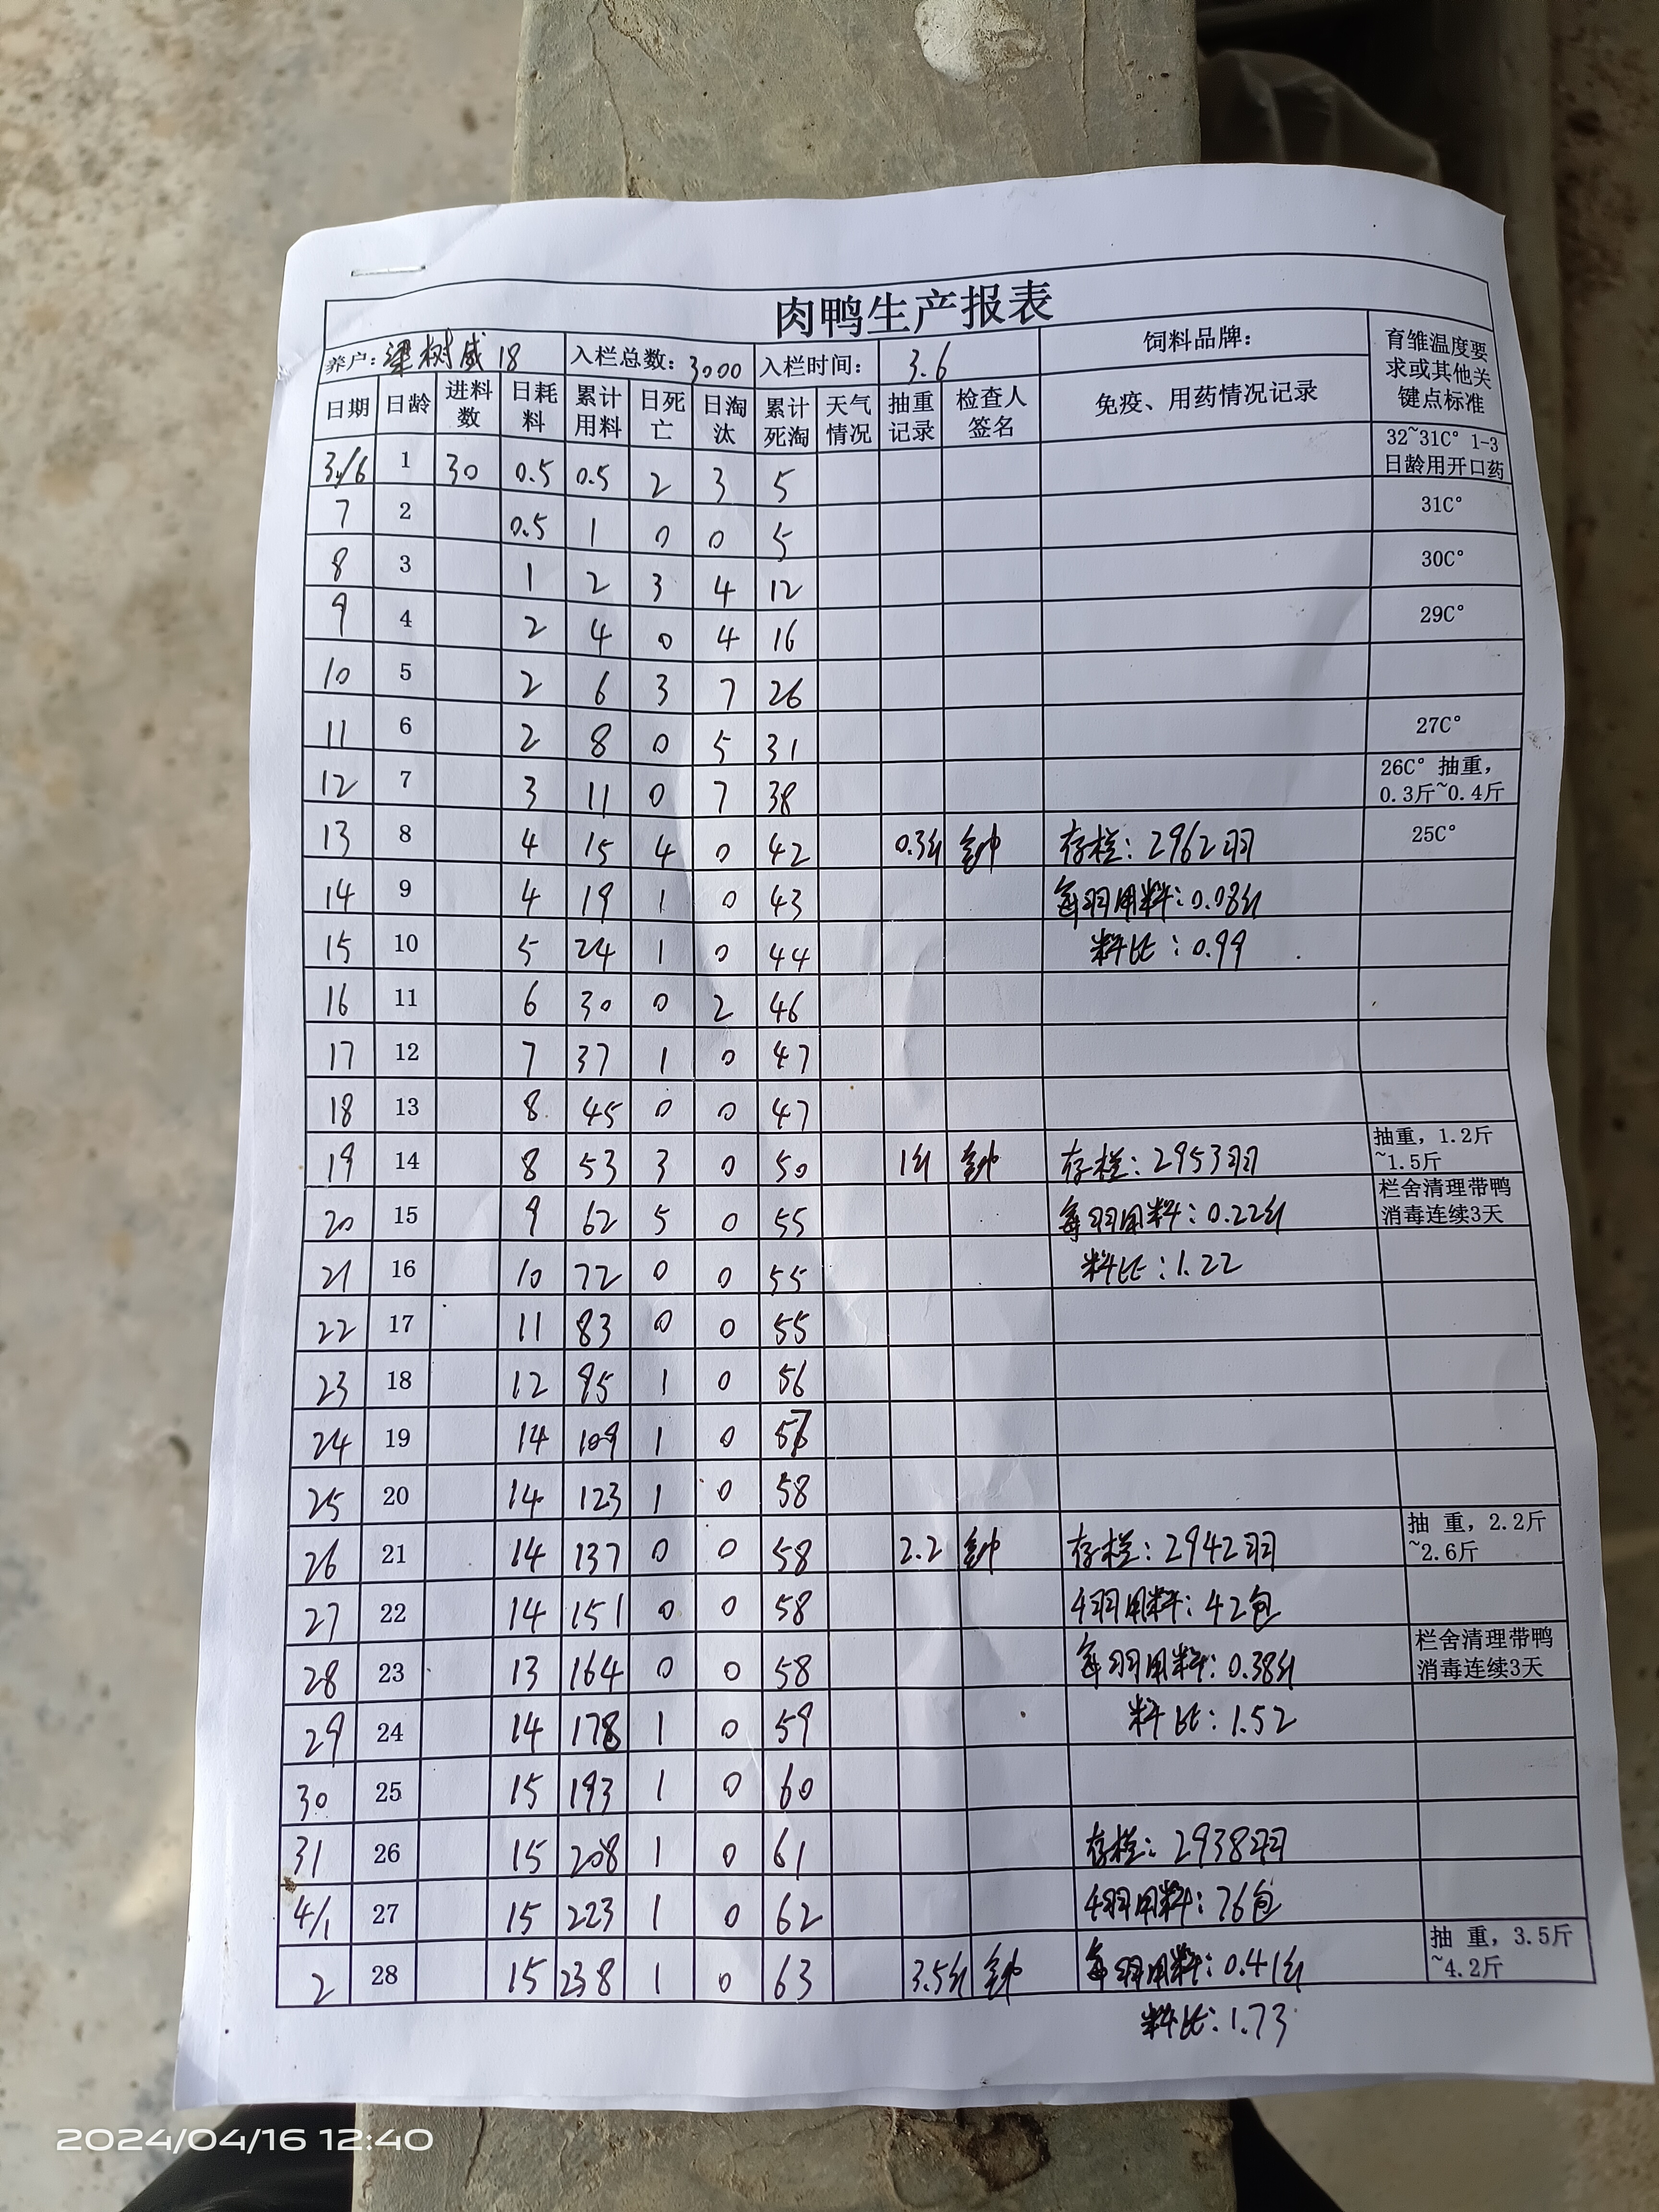 肉鸭生产报表
养户: 梁树威 18 入栏总数: 3000 入栏时间: 3.6 饲料品牌: 育雏温度要求或其他关键点标准
日期 日龄 进料数 日耗料 累计用料 日死亡 日淘汰 累计死淘 天气情况 抽重记录 检查人签名 免疫、用药情况记录
3/6 1 30 0.5 0.5 2 3 5 32~31C° 1-3日龄用开口药
7 2 0.5 1 0 0 5 31C°
8 3 1 2 3 4 12 30C°
9 4 2 4 0 4 16 29C°
10 5 2 6 3 7 26
11 6 2 8 0 5 31 27C°
12 7 3 11 0 7 38 26C° 抽重, 0.3斤~0.4斤
13 8 4 15 4 0 42 0.3斤 存栏: 2962羽 25C°
14 9 4 19 1 0 43 每羽用料: 0.08斤
15 10 5 24 1 0 44 料比: 0.99
16 11 6 30 0 2 46
17 12 7 37 1 0 47
18 13 8 45 0 0 47
19 14 8 53 3 0 50 1斤 存栏: 2953羽 抽重, 1.2斤~1.5斤
20 15 9 62 5 0 55 每羽用料: 0.22斤 栏舍清理带鸭消毒连续3天
21 16 10 72 0 0 55 料比: 1.22
22 17 11 83 0 0 55
23 18 12 95 1 0 56
24 19 14 109 1 0 57
25 20 14 123 1 0 58
26 21 14 137 0 0 58 2.2 存栏: 2942羽 抽 重, 2.2斤~2.6斤
27 22 14 151 0 0 58 羽用料: 42包
28 23 13 164 0 0 58 每羽用料: 0.38斤 栏舍清理带鸭消毒连续3天
29 24 14 178 1 0 59 料比: 1.52
30 25 15 193 1 0 60
31 26 15 208 1 0 61 存栏: 2938羽
4/1 27 15 223 1 0 62 羽用料: 76包
2 28 15 238 1 0 63 3.5斤 每羽用料: 0.41斤 抽 重, 3.5斤~4.2斤
料比: 1.73
2024/04/16 12:40